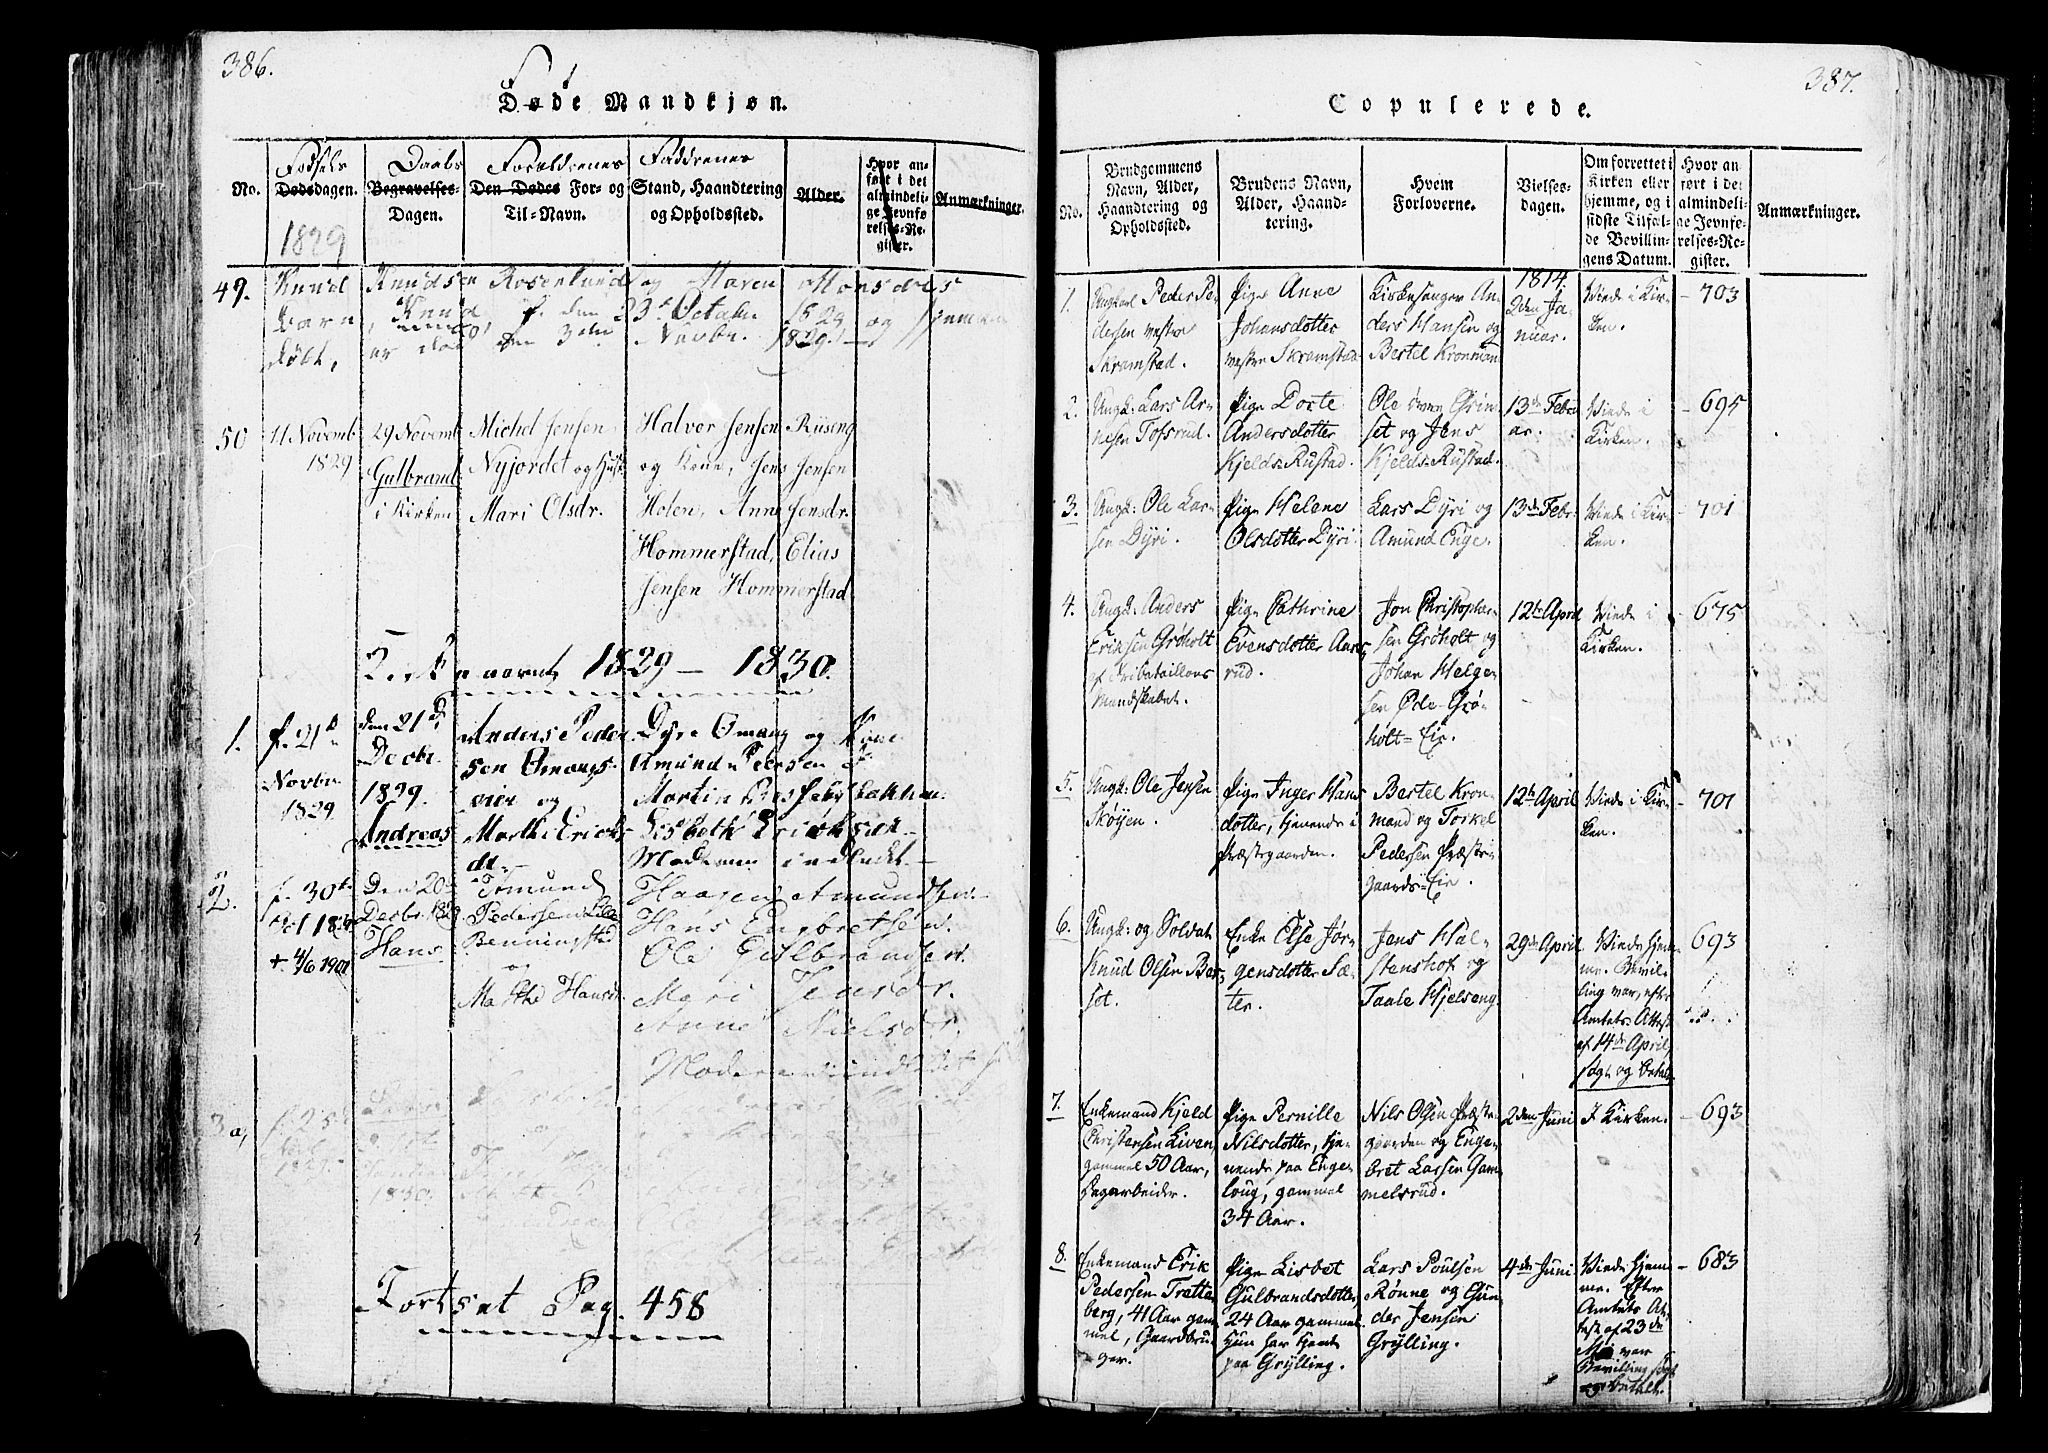 386.
Føde Mandkjøn.
No.
Fødsels
Dødsdagen.
Daabs
Begravelses-
Dagen.
Forældrenes
Den Dødes For- og
Til-Navn.
Faddrenes
Stand, Haandtering
og Opholdssted.
Alder.
Hvor an-
ført i det
almindeli-
ge Jevnfø
relses-Re-
gister.
Anmærkninger.
1829
49. Knud Knudsen Rosenlund og Maren Monsdr
Barn, Knud, f. den 23de Octabr 1829 og
døbt, er død den 3die Novbr. 1829.
50
11 Novemb
1829
29 Novemb
Gulbrand
i Kirken
Michel Jensen
Nyjordet og Hust
Mari Olsdr.
Halvor Jensen Ruseng
og Kone, Jens Jensen
Holen, Anne Jensdr.
Hommerstad, Elias
Jensen Hommerstad
Kirkeaaret 1829 – 1830.
1.
f. 21de
Novbr
1829
den 21de
Decbr.
1829.
Andreas
Anders Peder
sen Omangs
eier og
Marthe Erichs
dr.
Dyre Omang og Kone
Amund Persen
Martin
Lisbeth Erichsdr
Moderen indledet
2.
f. 30te
Oct 1829
+ 4/6 1901
Den 20de
Decbr. 1829
Hans
Amund
Pedersen
Benningstad
og
Marthe Hansdr.
Haagen Amundsen.
Hans Engbretsen.
Ole Gulbrandsen.
Mari Jensdr.
Anne Nielsdr.
Moderen indledet
3 a,
f. 25de
1829.
1830.
Ole
Fortsat Pag. 458
387.
Copulerede.
No.
Brudgommens
Navn, Alder,
Haandtering og
Opholdssted.
Brudens Navn,
Alder, Haand-
tering.
Hvem
Forloverne.
Vielses-
dagen.
Om forrettet i
Kirken eller
hjemme, og i
sidste Tilfæl-
de Bevillin-
gens Datum.
Hvor an
ført i det
almindeli-
ge Jevnfø-
relses-Re-
gister.
Anmærkninger.
1814.
1.
Ungkarl Peder Pe-
dersen vestre
Skramstad.
Pige Anne
Johansdotter
vestre Skramstad
Kirkesanger An-
ders Hansen og
Bertel Kronman
2den Ja-
nuar.
Viede i Kir-
ken.
– 703
2.
Ungk: Lars Ar-
nesen Tofsrud.
Pige Dorte
Andersdotter
Kjelds-Rustad.
Ole övre Grim-
set og Jens
Kjelds-Rustad.
13de Febru
ar.
Viede i
Kirken.
– 695
3.
Ungk: Ole Lar-
sen Dÿri.
Pige Helene
Olsdotter Dÿri
Lars Dÿri og
Amund Enge.
13de Febr.
Viede i Kir-
ken.
– 701
4.
Ungk: Anders
Eriksen Grøholt
af Fribataillons
Mandskabet.
Pige Cathrine
Evensdotter Aas-
rud.
Jon Christophers
sen Grøholt og
Johan Helge-
sen Øde-Grø-
holt-Eie.
12te April
Viede i
Kirken.
– 675
5.
Ungk: Ole Jensen
Skøÿen.
Pige Inger Hans
dotter, tjenende i
Præstegaarden.
Bertel Kron-
mand og Torkel
Pedersen Præste-
gaards-Eie.
12te April
Viede i Kir-
ken.
– 701
6.
Ungk: og Soldat
Knud Olsen Ber-
set.
Enke Else Jør-
gensdotter Sæ-
ter.
Jens Hal-
stenshof og
Taale Hjelseng.
29de April.
Viede hjem-
me. Bevil-
ling var, efter
Amtets Attest
af 14de April,
søgt og betalt
– 693
7.
Enkemand Kjeld
Christensen Liven
gammel 50 Aar,
Dagarbeider.
Pige Pernille
Nilsdotter, tje-
nende paa Enge-
loug, gammel
34 Aar.
Nils Olsen Præste-
gaarden og Enge-
bret Larsen Gam-
melsrud.
2den Juni
I Kirken.
– 693
8.
Enkemand Erik
Pedersen Trette-
berg, 41 Aar gam-
mel, Gaardbru-
ger.
Pige Lisbet
Gulbrandsdotter,
24 Aar gammel.
Hun har tjent
paa Grÿlling.
Lars Poulsen
Rønne og Gun-
der Jensen
Grÿlling.
4de Juni
Viede hjem-
me. Efter
Amtets At-
test af 23de
Mai var
Bevilling søgt
og betalt.
– 683